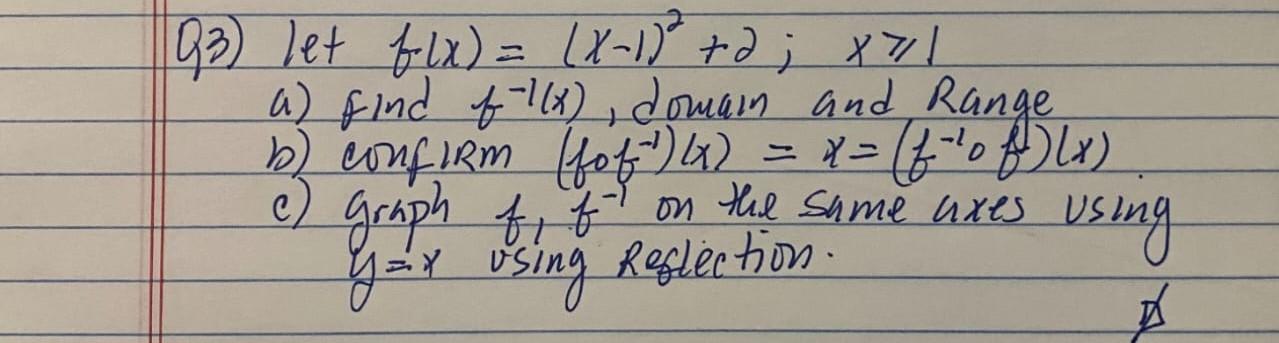 Q3) let f(x) = (x-1)² + 2 ; x ⩾ 1
a) find f⁻¹(x) , domain and Range
b) confirm (fof⁻¹)(x) = x = (f⁻¹o f)(x)
c) graph f, f⁻¹ on the same axes using
y = x using Reflection.